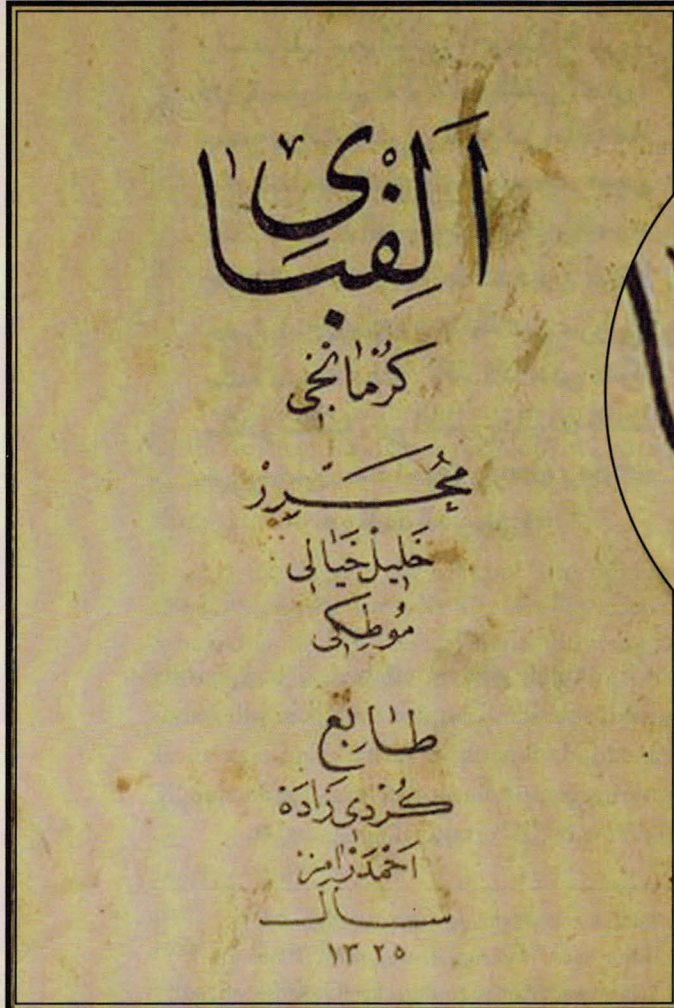 اَلِفْبَایٰ
کُرْمانْجی
مُحَرِّرْ
خَلِیلْ خَیَالی
مُوطِکی
طابِعْ
کُرْدِی زَادَه
اَحْمَدْ رَامِزْ
سال
١٣٢٥